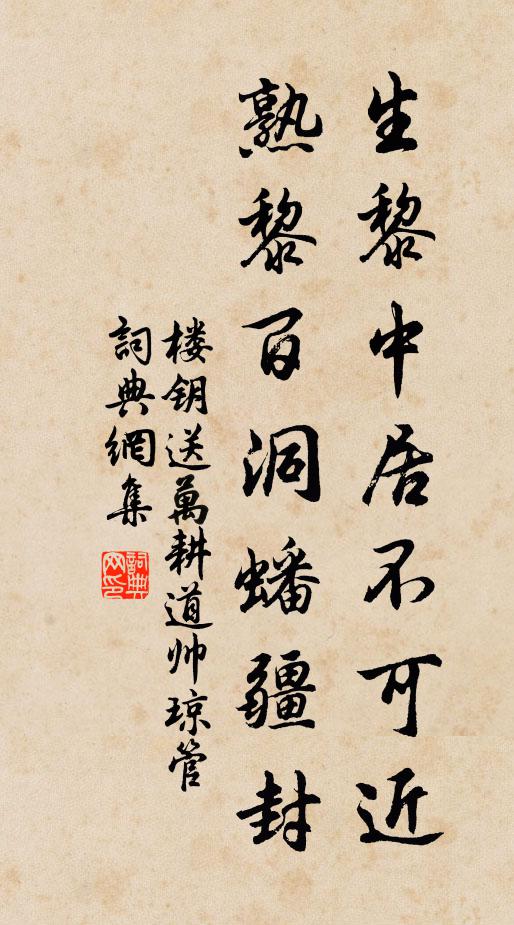 生黎中居不可近
熟黎百洞蟠疆封
楼钥送萬耕道帅琼管
詞典網集
詞典網印